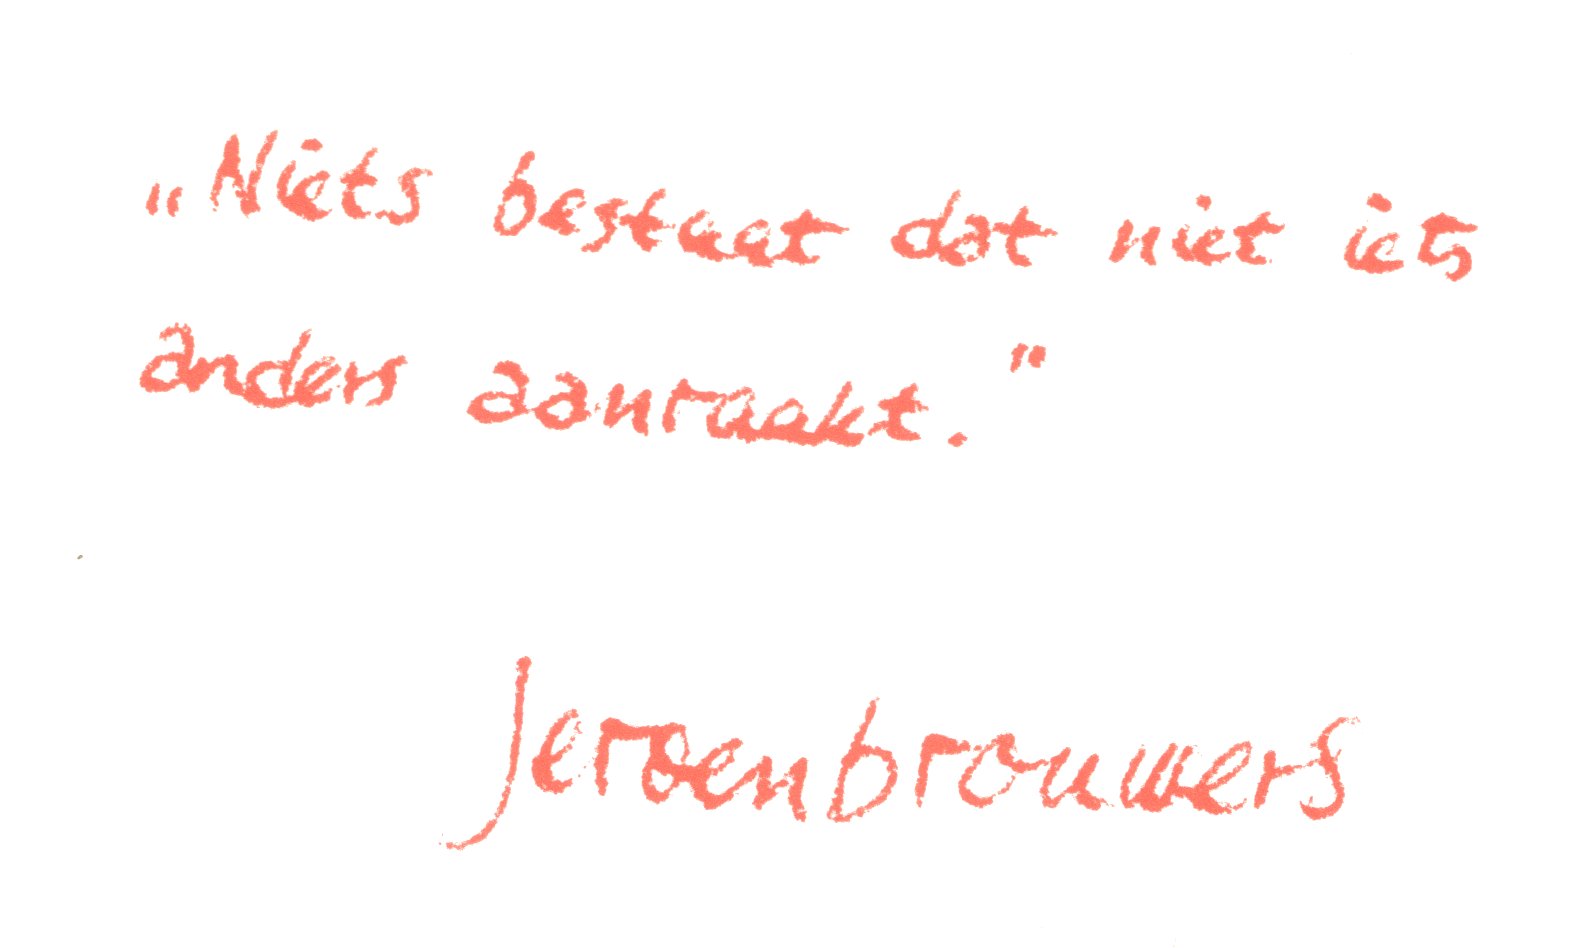 „Niets bestaat dat niet iets
anders aanraakt."
Jeroenbrouwers